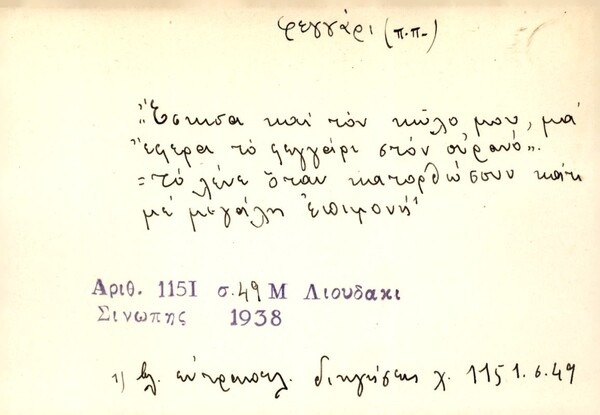 φεγγάρι (π.π.)
"Ἔσκισα καί τόν κῶλο μου, μά
ἔφερα τό φεγγάρι στόν οὐρανό".
=τό λένε ὅταν κατορθώσουν κάτι
μέ μεγάλη ἐπιμονή
Αριθ. 1151 σ.49 Μ Λιουδακι
Σινωπης 1938
1) βλ. εὐτραπελ. διηγήσεις χ. 1151. σ. 49